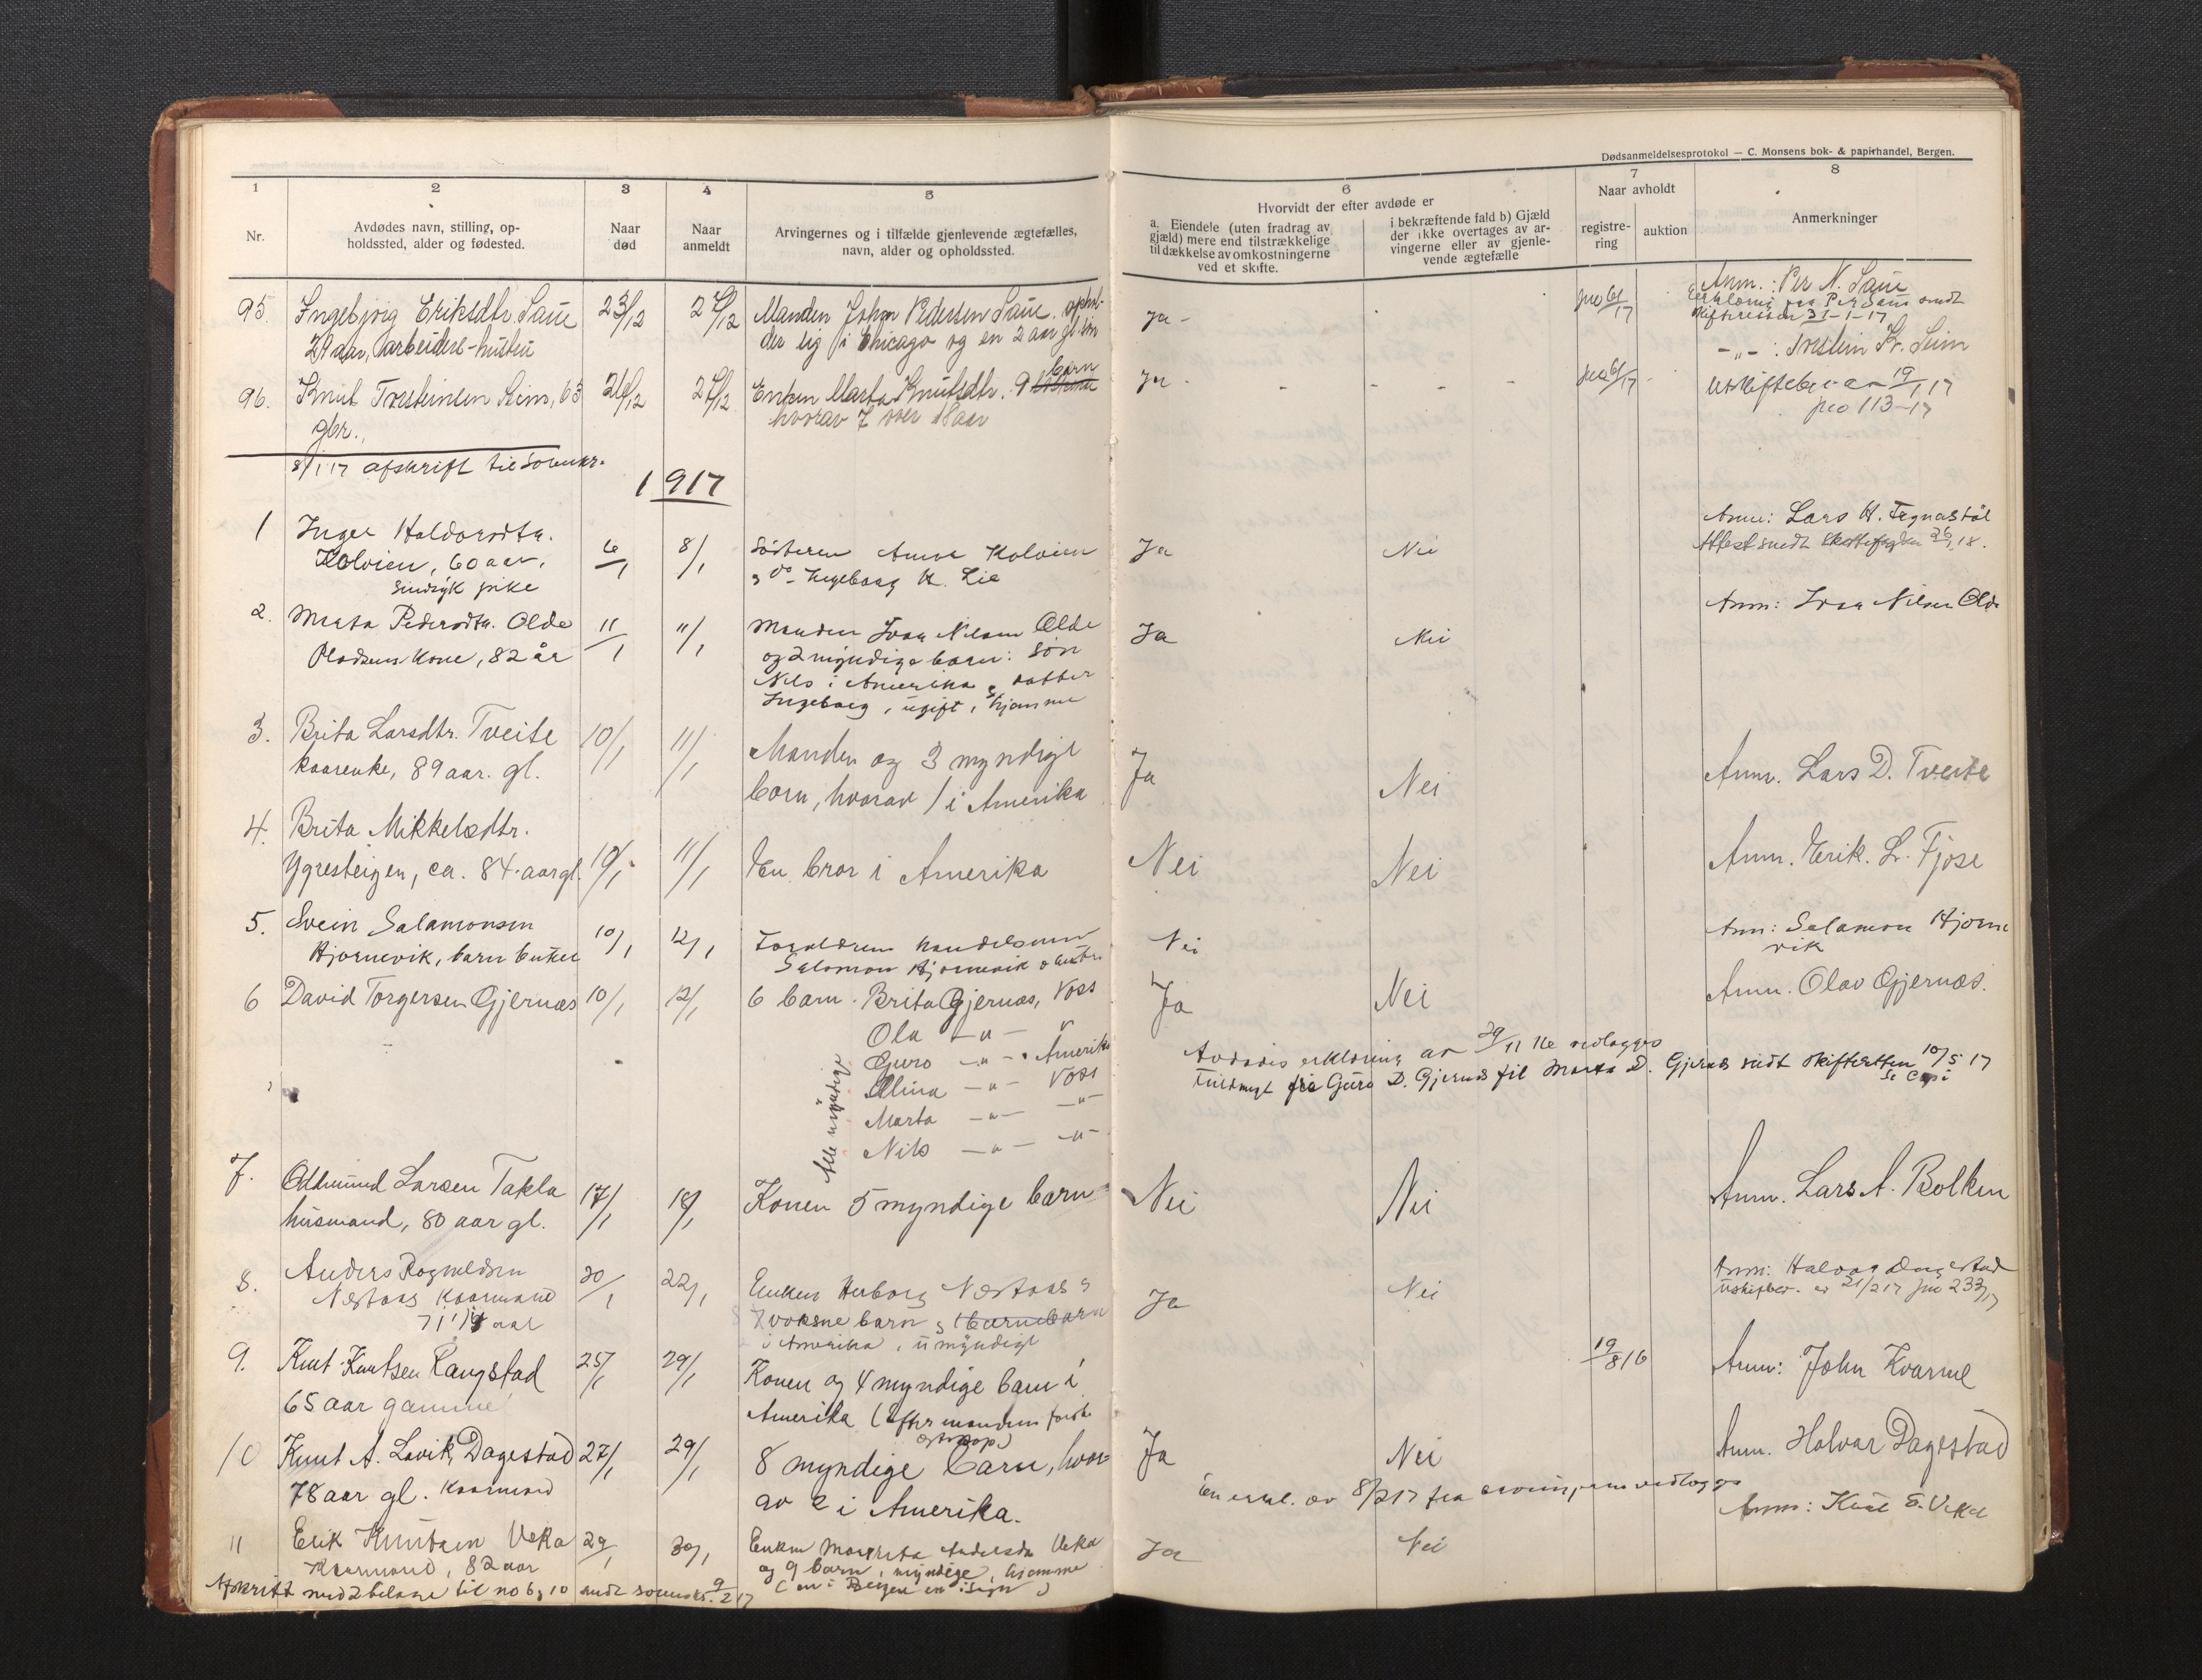 Dødsanmeldelsesprotokol — C. Monsens bok- & papirhandel, Bergen.
1 2 3 4 5
Nr.
Avdødes navn, stilling, op-
holdssted, alder og fødested.
Naar
død
Naar
anmeldt
Arvingernes og i tilfælde gjenlevende ægtefælles,
navn, alder og opholdssted.
6
Hvorvidt der efter avdøde er
a. Eiendele (uten fradrag av
gjæld) mere end tilstrækkelige
til dækkelse av omkostningerne
ved et skifte.
i bekræftende fald b) Gjæld
der ikke overtages av ar-
vingerne eller av gjenle-
vende ægtefælle
7
Naar avholdt
registre-
ring
auktion
8
Anmerkninger
95. Ingebjørg Eriksdtr. Saue
29 aar, arbeiders-hustru
23/12
27/12
Manden John Pedersen Saue, ophol-
der sig i Chicago og en 2 aar gl. søn
Ja -
Anm.: Per N. Saue
31-1-17
96. Knut Torsteinsen Seim, 63
gbr.,
27/12
Enken Marta Knutsdtr. 9 barn
hvorav 7 over
Ja -
-"- : Torstein K. Seim
19/1 17
113-17
8/1 17 afskrift til
1917
1 Inger Haldorsdtr.
Kolvien, 60 aar,
sindsyk pike
6/1
8/1
Søsteren Anna Kolvien
Ingeborg H. Lie
Ja
Nei
Anm: Lars H. Tegnastøl
Attest sendt
2. Marta Pedersdtr. Olde
Pladsens kone, 82 år
11/1
11/1
Manden Ivar Nilsen Olde
og 2 myndige barn: søn
Nils i Amerika datter
Ingeborg, ugift, hjemme
Ja
Nei
Anm: Ivar Nilsen Olde
3. Brita Larsdtr. Tveite
kaarenke, 89 aar. gl.
10/1
11/1
Manden og 3 myndige
barn, hvorav 1 i Amerika
Ja
Nei
Anm. Lars D. Tveite
4. Brita Mikkelsdtr.
Ygresteigen, ca. 84. aar gl.
10/1
11/1
En bror i Amerika
Nei
Nei
Anm. Erik. L. Fjose
5. Svein Salamonsen
Hjørnevik, barn
10/1
12/1
Forældrene handelsmann
Salomon Hjørnevik
Nei
Anm: Salamon Hjørne
vik
6 David Torgersen Gjernæs
10/1
12/1
6 barn. Brita Gjernæs, Voss
Ola -"- "
Guro -"- Amerika
Elina -"- Voss
Marta -"- -"-
Nils -"- -"-
Alle myndige
Ja
Nei
Anm. Olav Gjernæs.
Avdødes erklæring av 29/11 16 vedlægges
Fuldmagt fra Guro D. Gjernæs til Marta D. Gjernæs sendt skifteretten 10/5 17
7. Odmund Larsen Takla
husmand, 80 aar gl.
17/1
18/1
Konen 5 myndige barn
Nei
Nei
Anm. Lars A. Bolken
8. Anders Rognvaldsen
Nestaas kaarmand
20/1
22/1
Enken Herborg Nestaas
7 voksne barn barnebarn
i Amerika, umyndigt
Ja
Nei
Anm: Halvor Dagestad
21/2 17 233/17
9. Knut Knutsen Rangstad
65 aar gammel
25/1
29/1
Konen og 4 myndige barn i
Amerika (Efter manden
19/8 16
Anm: John Kvarme
10 Knut A. Løvik, Dagestad
78 aar gl. kaarmand
27/1
29/1
8 myndige barn, hvor-
av 2 i Amerika.
Ja
Nei
En erkl. av 8/2 17 fra arvingerne vedlægges
Anm. Halvor Dagestad
11 Erik Knutsen Veka
Kaarmand, 82 aar
29/1
30/1
Enken Margreta Andersdtr Veka
og 9 barn, myndige, hjemme
Ja
Nei
Anm: Knut E. Veka
Afskrift med 2 bilage til no 6 10 sendt 9/2 17